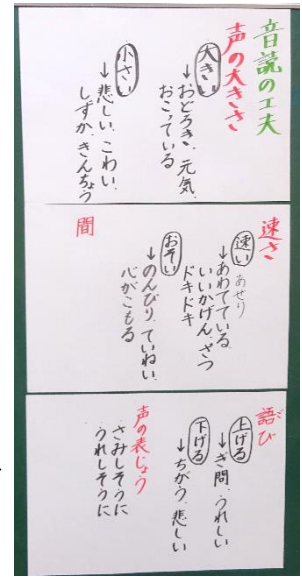 音読の工夫
声の大きさ
大きい
→おどろき、元気、
おこっている
小さい
→悲しい、こわい、
しずか、きんちょう
速さ
速い
あせり
→あわてている
いいかげん、ざつ
ドキドキ
おそい
→のんびり、ていねい、
心がこもる
間
語び
上げる
→ぎ問、うれしい
下げる
→ちがう、悲しい
声の表じょう
さみしそうに
うれしそうに